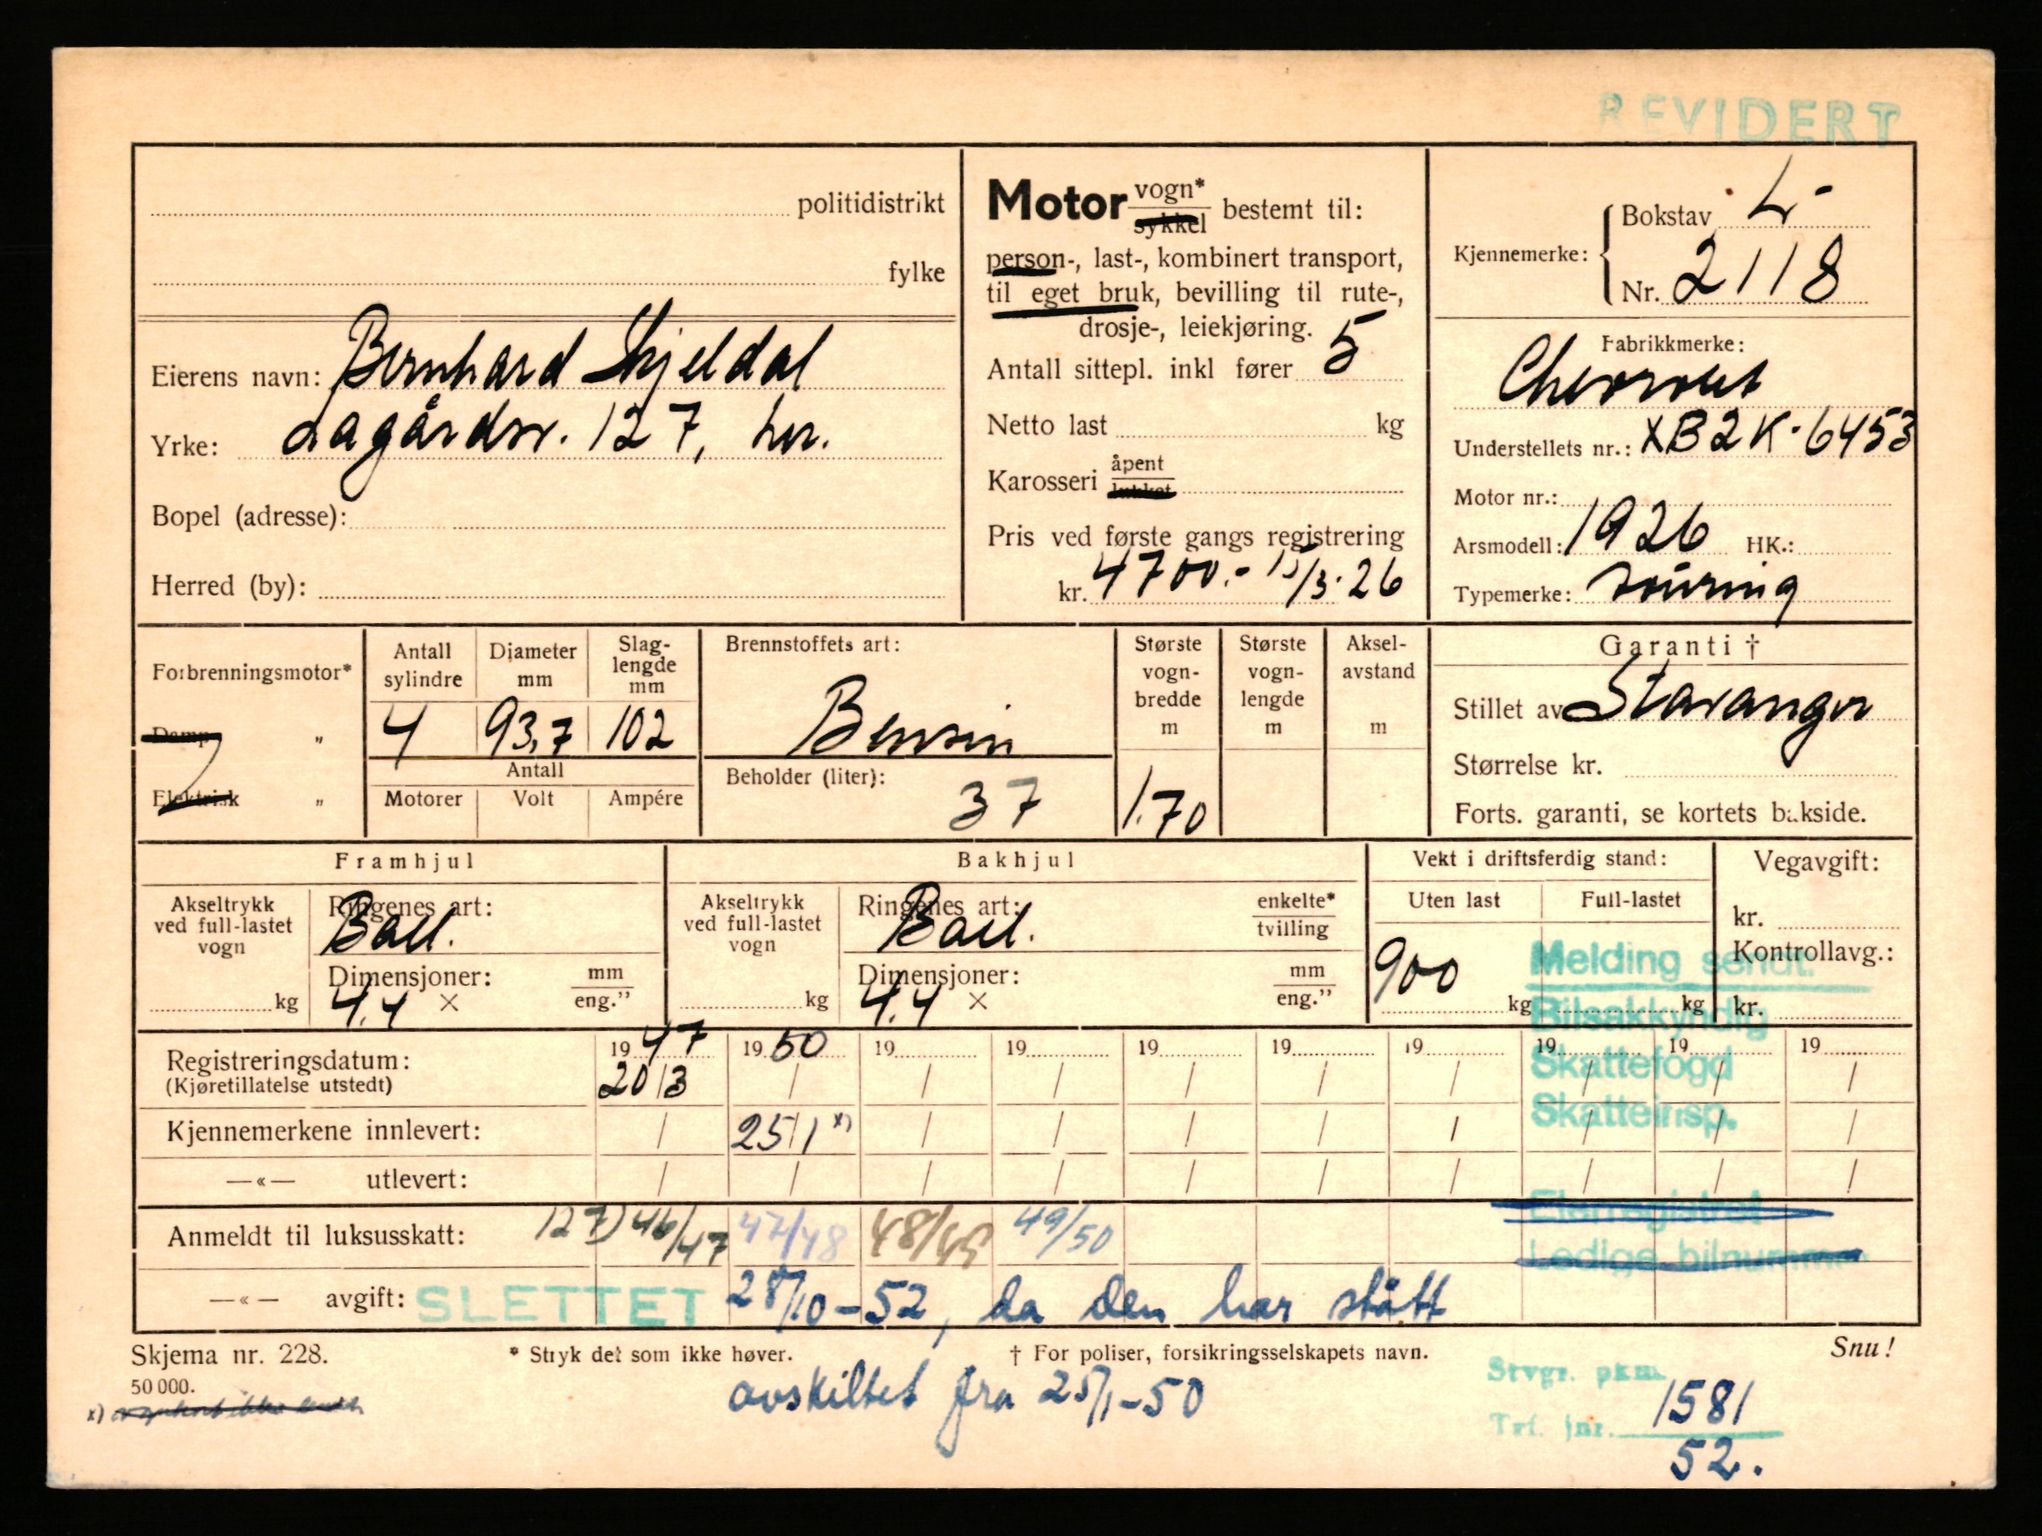 REVIDERT
politidistrikt
fylke
Eierens navn: Bernhard Skjeldal
Yrke: Lagårdsv. 127, her.
Bopel (adresse):
Herred (by):
Motor vogn*
sykkel bestemt til:
person-, last-, kombinert transport,
til eget bruk, bevilling til rute-,
drosje-, leiekjøring.
Antall sittepl. inkl fører 5
Netto last kg
Karosseri åpent
lukket
Pris ved første gangs registrering
kr. 4700.- 15/3-26
Kjennemerke: Bokstav L-
Nr. 2118
Fabrikkmerke:
Chevrolet
Understellets nr.: XB2K-6453
Motor nr.:
Arsmodell: 1926 HK.:
Typemerke: touring
Forbrenningsmotor*
Damp "
Elektrisk "
Antall sylindre Diameter mm Slag-lengde mm
4 93,7 102
Antall
Motorer Volt Ampére
Brennstoffets art:
Bensin
Beholder (liter): 37
Største vogn-bredde m
1.70
Største vogn-lengde m
Aksel-avstand m
Garanti †
Stillet av Stavanger
Størrelse kr.
Forts. garanti, se kortets bakside.
Framhjul
Akseltrykk ved full-lastet vogn
kg
Ringenes art:
Ball.
Dimensjoner: mm
4.4 × eng."
Bakhjul
Akseltrykk ved full-lastet vogn
kg
Ringenes art: enkelte*
Ball. tvilling
Dimensjoner: mm
4.4 × eng."
Vekt i driftsferdig stand:
Uten last Full-lastet
900 kg kg
Vegavgift:
kr.
Kontrollavg.:
kr.
Melding sendt:
Bilsakkyndig
Skattefogd
Skatteinsp.
Eierregistret
Ledige bilnummer
Registreringsdatum: 1947 1950 19 19 19 19 19 19 19 19
(Kjøretillatelse utstedt) 20/3 / / / / / / / / /
Kjennemerkene innlevert: / 25/1 x) / / / / / / / /
—«— utlevert: / / / / / / / / / /
Anmeldt til luksusskatt: 127) 46/47 47/48 48/49 49/50
—«— avgift: SLETTET 28/10-52, da den har stått
Skjema nr. 228. * Stryk det som ikke høver. † For poliser, forsikringsselskapets navn. Snu!
50 000.
avskiltet fra 25/1-50
x)
Stvgr. pkm.
Trf. jnr. 1581
52.